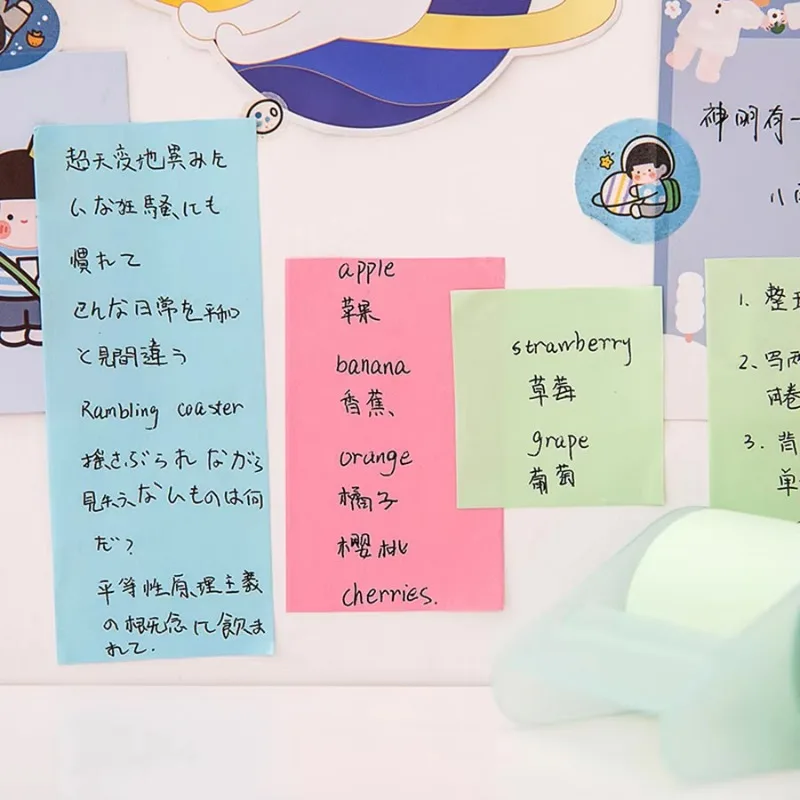 超天変地異みた
いな狂騒にも
慣れて
こんな日常を平和
と見間違う
Rambling coaster
揺さぶられながら
見失えないものは何
だ？
平等性原理主義
の概念に飲ま
れて.
apple
苹果
banana
香蕉
orange
橘子
樱桃
cherries.
strawberry
草莓
grape
葡萄
神明有一
1. 整
2、写两
3. 背
单